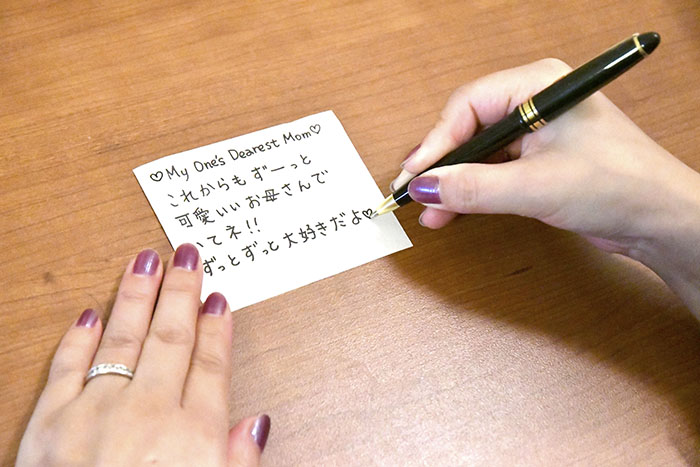 ♡My One's Dearest Mom♡
これからもずーっと
可愛いいお母さんで
いてネ!!
ずっとずっと大好きだよ♡